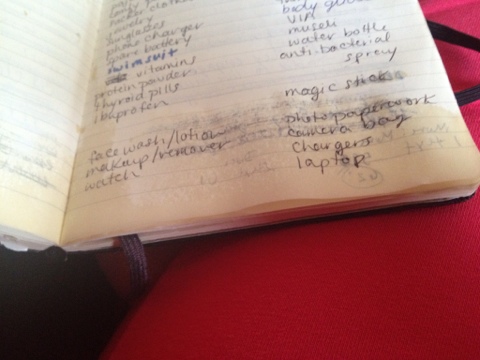 jewelry
sunglasses
phone charger
spare battery
swimsuit
vitamins
protein powder
thyroid pills
ibuprofen
face wash/lotion
makeup/remover
watch
body
VIA
muesli
water bottle
anti-bacterial
spray
magic stick
photo paperwork
camera bag
chargers
laptop